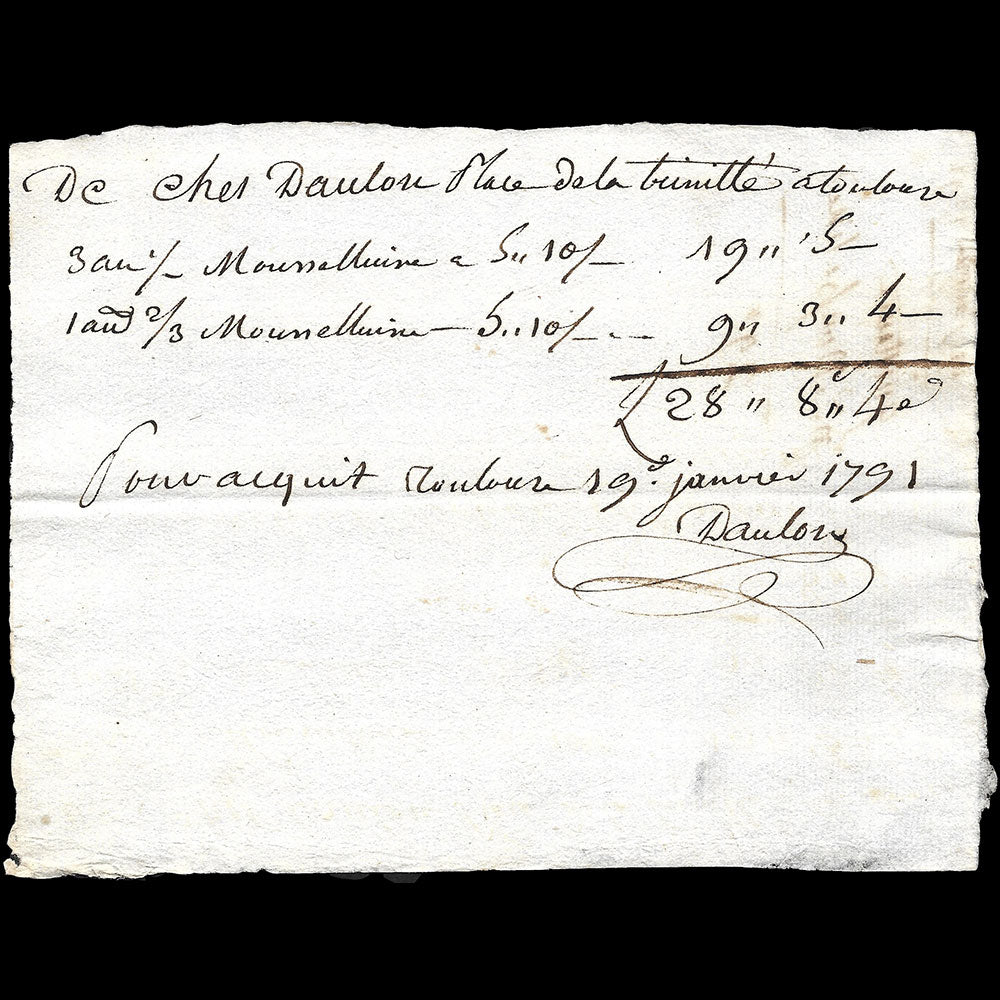 De ches Daulon Place de la trinitté a toulouse
3 au 1/2 Mousselluine a 5,, 10/— 19,, 5—
1 au 2/3 Mousselluine — 5,, 10/— 9,, 3,, 4—
L 28,, 8,, 4d
Pour acquit Toulouse 19e janvier 1791
Daulon